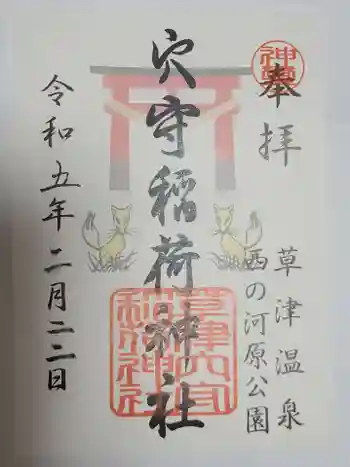 奉拝
草津温泉
西の河原公園
穴守稲荷神社
草津穴守稲荷神社
令和五年二月二二日